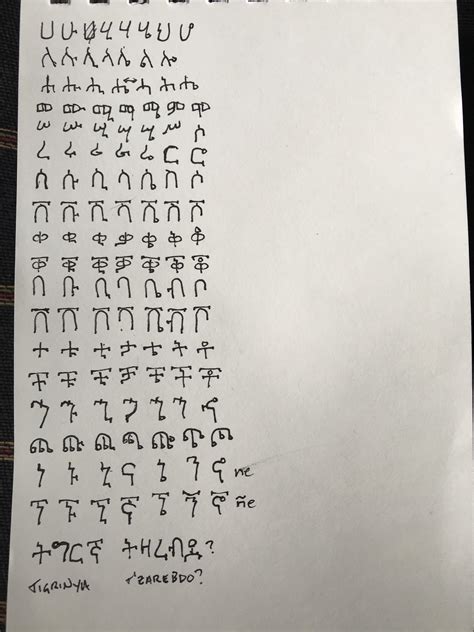 ሀ ሁ ሂ ሃ ሄ ህ ሆ
ለ ሉ ሊ ላ ሌ ል ሎ
ሐ ሑ ሒ ሔ ሓ ሕ ሖ
መ ሙ ሚ ማ ሜ ም ሞ
ሠ ሡ ሢ ሣ ሤ ሥ ሶ
ረ ሩ ሪ ራ ሬ ር ሮ
ሰ ሱ ሲ ሳ ሴ ስ ሶ
ሸ ሹ ሺ ሻ ሼ ሽ ሾ
ቀ ቁ ቂ ቃ ቄ ቅ ቆ
ቐ ቑ ቒ ቓ ቔ ቕ ቖ
በ ቡ ቢ ባ ቤ ብ ቦ
ቨ ቩ ቪ ቫ ቬ ቭ ቮ
ተ ቱ ቲ ታ ቴ ት ቶ
ቸ ቹ ቺ ቻ ቼ ች ቾ
ኀ ኁ ኂ ኃ ኄ ኅ ኆ
ጨ ጩ ጪ ጫ ጬ ጭ ጮ
ነ ኑ ኒ ና ኔ ን ኖ ne
ኘ ኙ ኚ ኛ ኜ ኝ ኞ ñe
ትግርኛ ትዛረብዶ?
TIGRINYA T'ZAREBDO?